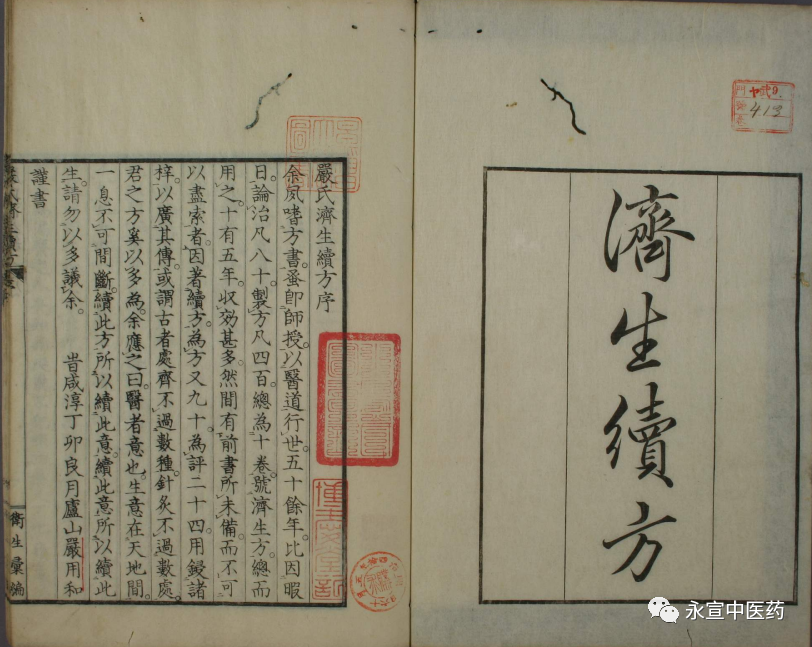 濟生續方
嚴氏濟生續方序
余夙嗜方書蚤卽師授以醫道行世五十餘年比因暇
日論治凡八十製方凡四百總為十卷號濟生方總而
用之十有五年收効甚多然間有前書所未備而不可
以盡索者因著續方為方又九十為評二十四用鋟諸
梓以廣其傳或謂古者處齊不過數種針灸不過數處
君之方奚以多為余應之曰醫者意也生意在天地間
一息不可間斷續此方所以續此意續此意所以續此
生請勿以多議余
旹咸淳丁卯良月廬山嚴用和
謹書
衛生彙編
413
永宣中医药